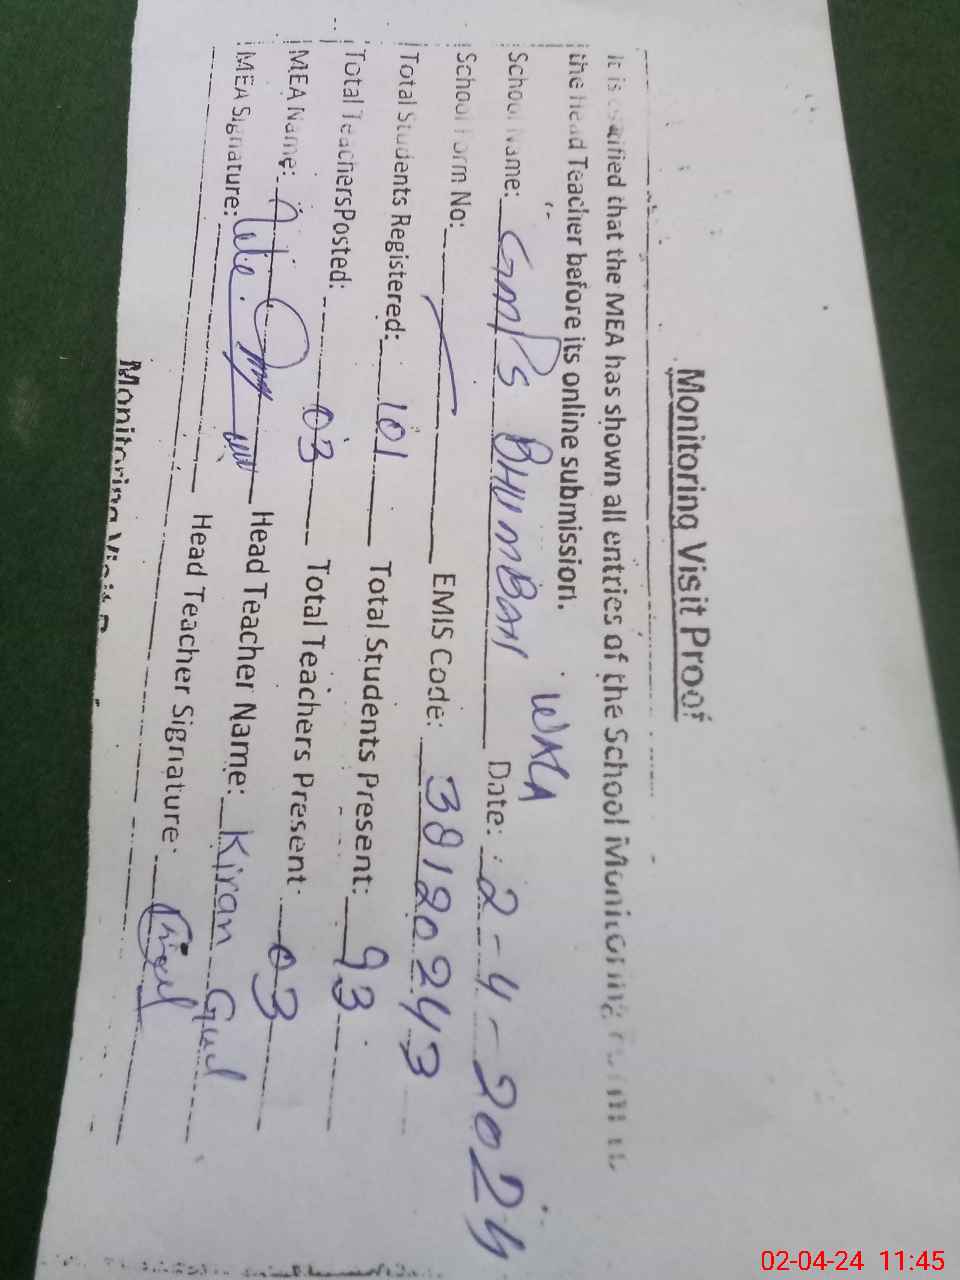 Monitoring Visit Proof
It is certified that the MEA has shown all entries of the School Monitoring Form to
the Head Teacher before its online submission.
School Name: GMPS BHUMBAN WALA Date: 2-4-2024
School Form No: EMIS Code: 38120243
Total Students Registered: 101 Total Students Present: 93
Total TeachersPosted: 03 Total Teachers Present: 03
MEA Name: Head Teacher Name: Kiran Gul
MEA Signature: Head Teacher Signature:
Monitoring Visit
02-04-24 11:45